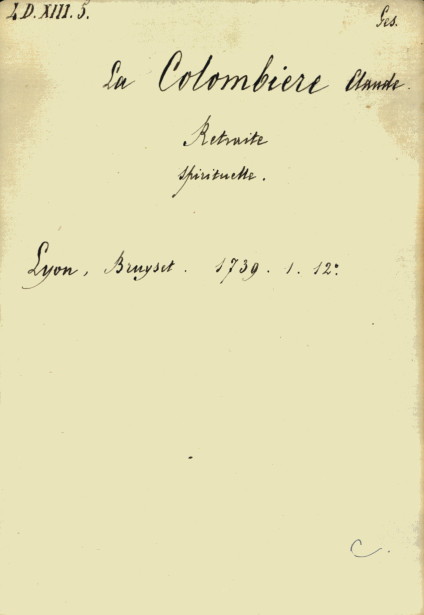 4.D.XIII.5.
Ges.
La Colombiere Claude.
Retraite
spirituelle.
Lyon, Bruyset. 1739. 1. 12°.
C.